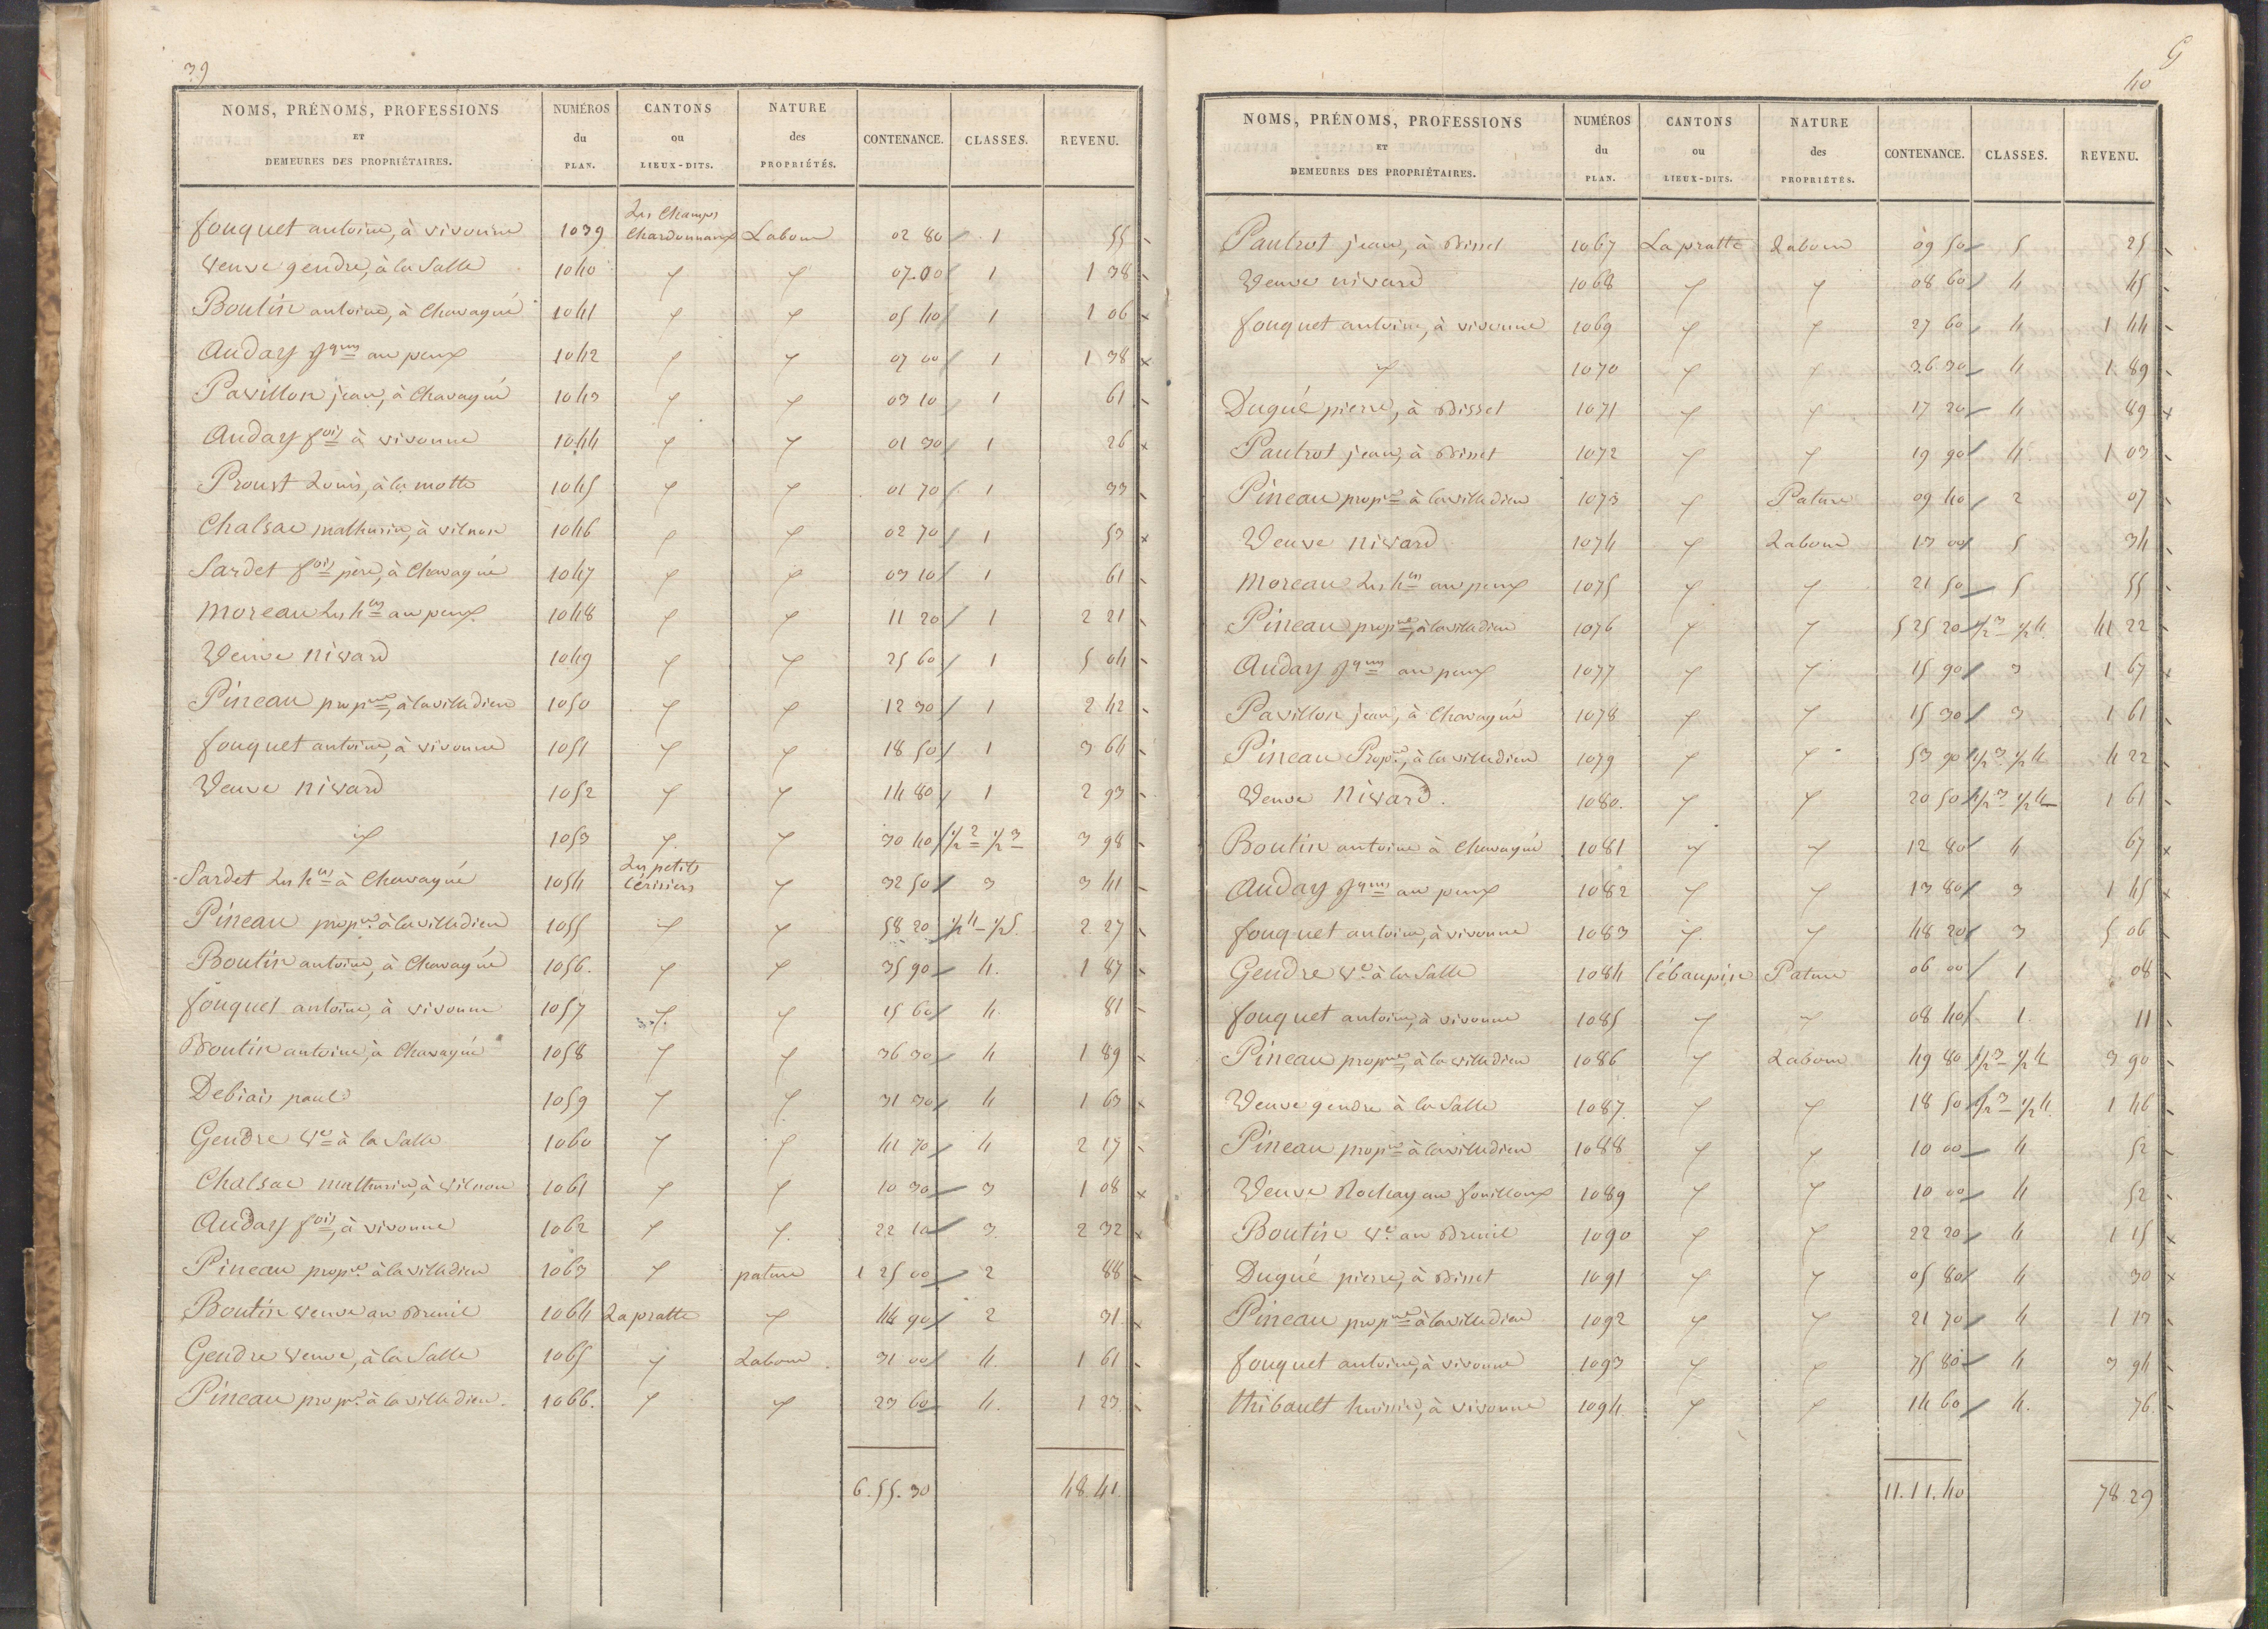 39
NOMS, PRÉNOMS, PROFESSIONS ET DEMEURES DES PROPRIÉTAIRES. NUMÉROS du PLAN. CANTONS ou LIEUX-DITS. NATURE des PROPRIÉTÉS. CONTENANCE. CLASSES. REVENU.
fouquet antoine, à vivonne 1039 Les Champs Chardonnaux Labour 02 80 1 55
Veuve gendre, à la Salle 1040 " " 07.00 1 1 38
Boutin antoine, à Chavagné 1041 " " 05 40 1 1 06
Auday Jques au peux 1042 " " 07 00 1 1 38
Pavillon jean, à Chavagné 1043 " " 03 10 1 61
Auday fois à vivonne 1044 " " 01 30 1 26
Proust Louis, à la motte 1045 " " 01 70 1 33
Chalsac mathurin, à vilnon 1046 " " 02 70 1 53
Sardet fois père, à Chavagné 1047 " " 03 10 1 61
Moreau Les hers au peux 1048 " " 11 20 1 2 21
Veuve Nivard 1049 " " 25 60 1 5 04
Pineau propre, à la villedieu 1050 " " 12 30 1 2 42
fouquet antoine, à vivonne 1051 " " 18 50 1 3 64
Veuve Nivard 1052 " " 14 80 1 2 93
" 1053 " " 30 40 1/2 2 1/2 3 3 98
Sardet Les hers à Chavagné 1054 Les petits Cérisiers " 32 50 3 3 41
Pineau propre à la villedieu 1055 " " 58 20 1/2 4 1/2 5 2 27
Boutin antoine, à Chavagné 1056. " " 35 90 4. 1 87
fouquet antoine, à vivonne 1057 " " 15 60 4. 81
Boutin antoine, à Chavagné 1058 " " 36 30 4 1 89
Debiais paul 1059 " " 31 30 4 1 63
Gendre Ve à la Salle 1060 " " 41 70 4 2 17
Chalsac mathurin, à vilnon 1061 " " 10 30 3 1 08
Auday fois, à vivonne 1062 " " 22 10 3. 2 32
Pineau propre à la villedieu 1063 " pature 1 25 00 2 88
Boutin veuve au Breuil 1064 La pratte " 44 90 2 31
Gendre veuve, à la Salle 1065 " Labour 31 00 4. 1 61
Pineau propre à la villedieu. 1066. " " 23 60 4. 1 23
6.55.30 48.41
G
40
NOMS, PRÉNOMS, PROFESSIONS ET DEMEURES DES PROPRIÉTAIRES. NUMÉROS du PLAN. CANTONS ou LIEUX-DITS. NATURE des PROPRIÉTÉS. CONTENANCE. CLASSES. REVENU.
Pautrot jean, à Bisset 1067 La pratte Labour 09 50 5 25
Veuve nivard 1068 " " 08 60 4 45
fouquet antoine, à vivonne 1069 " " 27 60 4 1 44
" 1070 " " 36 30 4 1 89
Dugué pierre, à Bisset 1071 " " 17 20 4 89
Pautrot jean, à Bisset 1072 " " 19 90 4. 1 03
Pineau propre à la villedieu 1073 " Pature 09 40 2 07
Veuve Nivard 1074 " Labour 13 00 5 34
Moreau Les hers au peux 1075 " " 21 50 5 55
Pineau propre, à la villedieu 1076 " " 5 25 20 1/2 3 1/2 4. 41 22
Auday Jques au peux 1077 " " 15 90 3 1 67
Pavillon jean, à Chavagné 1078 " " 15 30 3 1 61
Pineau Propre, à la villedieu 1079 " " 53 90 1/2 3 1/2 4 4 22
Veuve Nivard. 1080. " " 20 50 1/2 3 1/2 4 1 61
Boutin antoine à Chavagné 1081 " " 12 80 4 67
Auday Jques au peux 1082 " " 13 80 3 1 45
fouquet antoine, à vivonne 1083 " " 48 20 3 5 06
Gendre Ve à la Salle 1084 l'ébaupin Pature 06 00 1 08
fouquet antoine, à vivonne 1085 " " 08 40 1. 11
Pineau propre, à la villedieu 1086 " Labour 49 80 1/2 3 1/2 4 3 90
Veuve gendre à la Salle 1087. " " 18 50 1/2 3 1/2 4. 1 46
Pineau propre à la villedieu 1088 " " 10 00 4 52
Veuve Rochay au fouilloux 1089 " " 10 00 4 52
Boutin Ve au Breuil 1090 " " 22 20 4 1 15
Dugué pierre, à Bisset 1091 " " 05 80 4 30
Pineau propre à la villedieu 1092 " " 21 70 4 1 13
fouquet antoine, à vivonne 1093 " " 75 80 4 3 94
thibault à vivonne 1094 " " 14 60 4. 76.
11.11.40 78 29